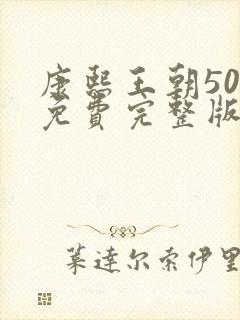 康熙王朝50
免費完整版
葉達尔索伊里